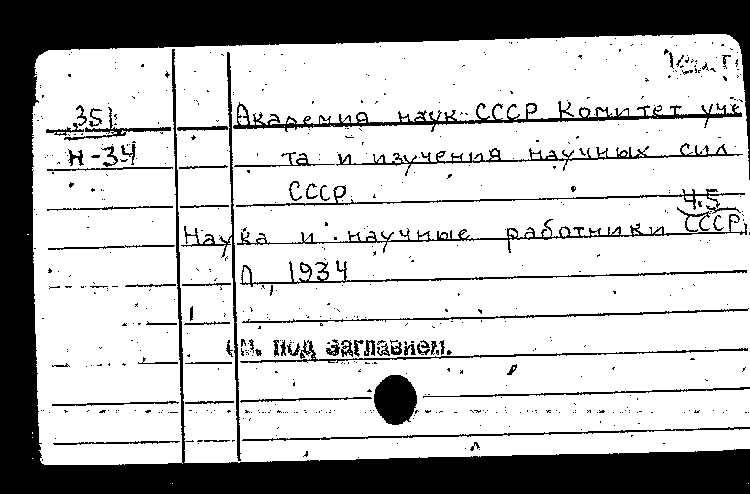 351
Н-34
Академия наук СССР Комитет уче
та и изучения научных сил
СССР.
ч.5
Наука и научные работники СССР,
Л., 1934
см. под заглавием.